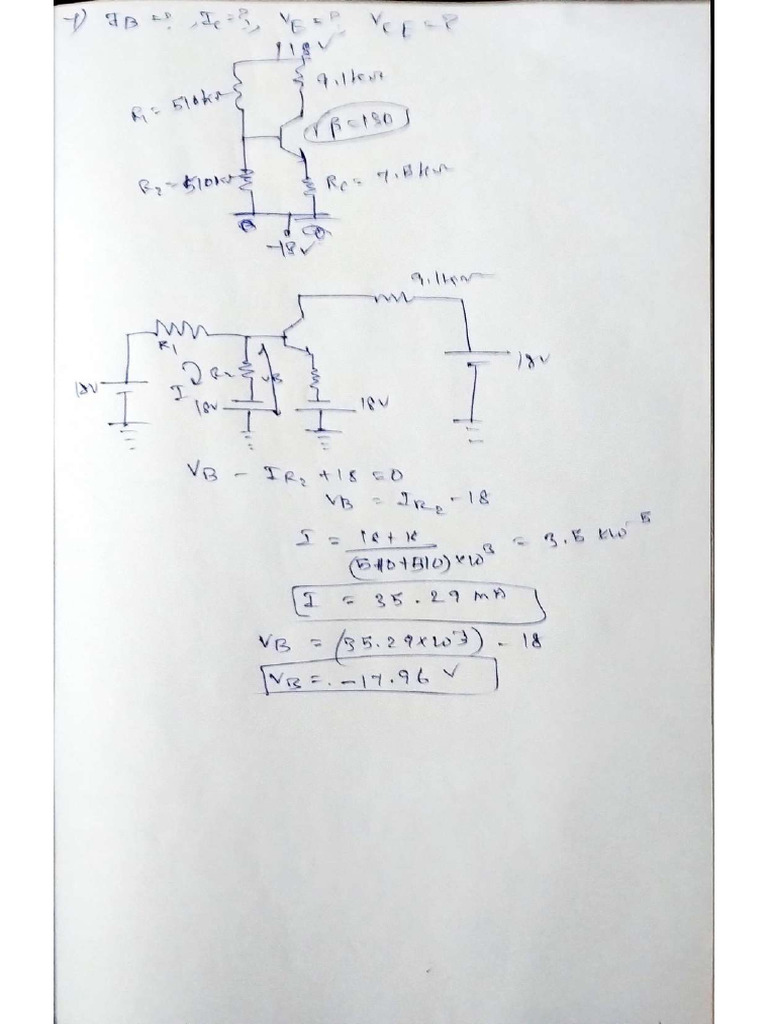 1) IB=?, IC=?, VE=? VCE=?
+18V
9.1kΩ
R1=510kΩ
β=130
R2=510kΩ
RC=7.5kΩ
-18V
9.1kΩ
R1
18V
I
R2
VB
18V
18V
18V
VB - IR2 +18 =0
VB = IR2 -18
I = 18+18 / (510+510)×10^3 = 3.5×10^-5
I = 35.29 mA
VB = (35.29×10^-3) - 18
VB = -17.96 V